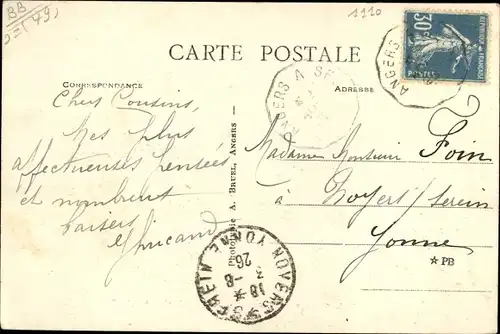 BB
(49)
1110
30
RÉPUBLIQUE FRANÇAISE
POSTES
ANGERS
CARTE POSTALE
ANGERS A
CORRESPONDANCE
ADRESSE
Chers Cousins,
Mes plus
affectueuses pensées
et nombreux
baisers
Photographie A. BRUEL, ANGERS
Madame Monsieur Foin
à Noyers/Serein
Yonne
* PB
NOYERS * SEREIN YONNE
18 *
3 -8
26